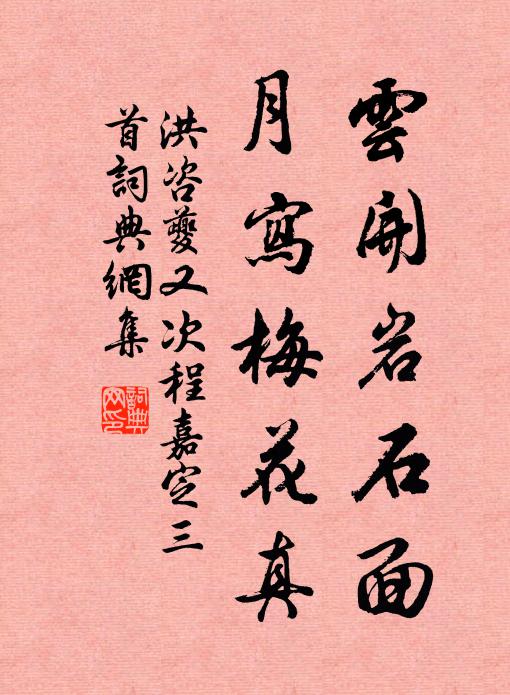 雲開岩石面
月寫梅花真
洪咨夔又次程嘉定三
首詞典網集
詞典
网印